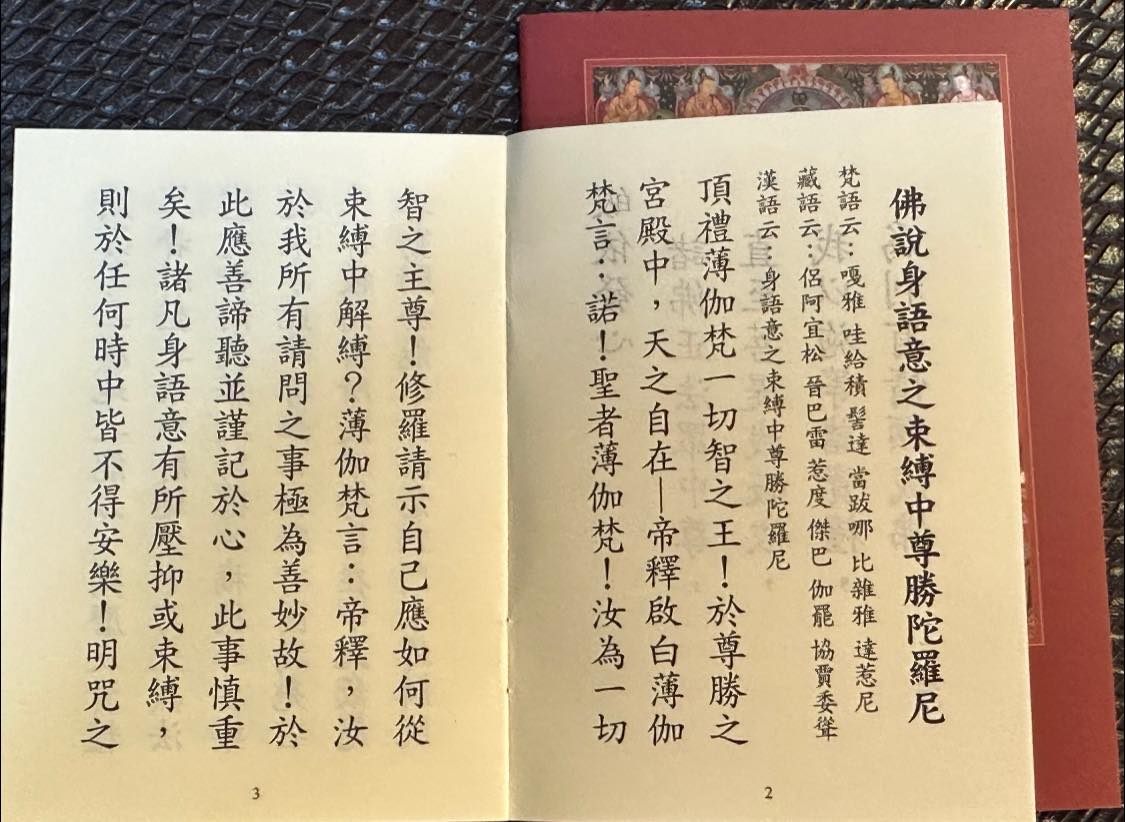 佛說身語意之束縛中尊勝陀羅尼
梵語云：嘎雅 哇給積 髻達 當跋哪 比雜雅 達惹尼
藏語云：侶阿宜松 晉巴雷 惹度 傑巴 伽罷 協賈委聳
漢語云：身語意之束縛中尊勝陀羅尼
頂禮薄伽梵一切智之王！於尊勝之
宮殿中，天之自在—帝釋啟白薄伽
梵言：諾！聖者薄伽梵！汝為一切
2
智之主尊！修羅請示自己應如何從
束縛中解縛？薄伽梵言：帝釋，汝
於我所有請問之事極為善妙故！於
此應善諦聽並謹記於心，此事慎重
矣！諸凡身語意有所壓抑或束縛，
則於任何時中皆不得安樂！明咒之
3